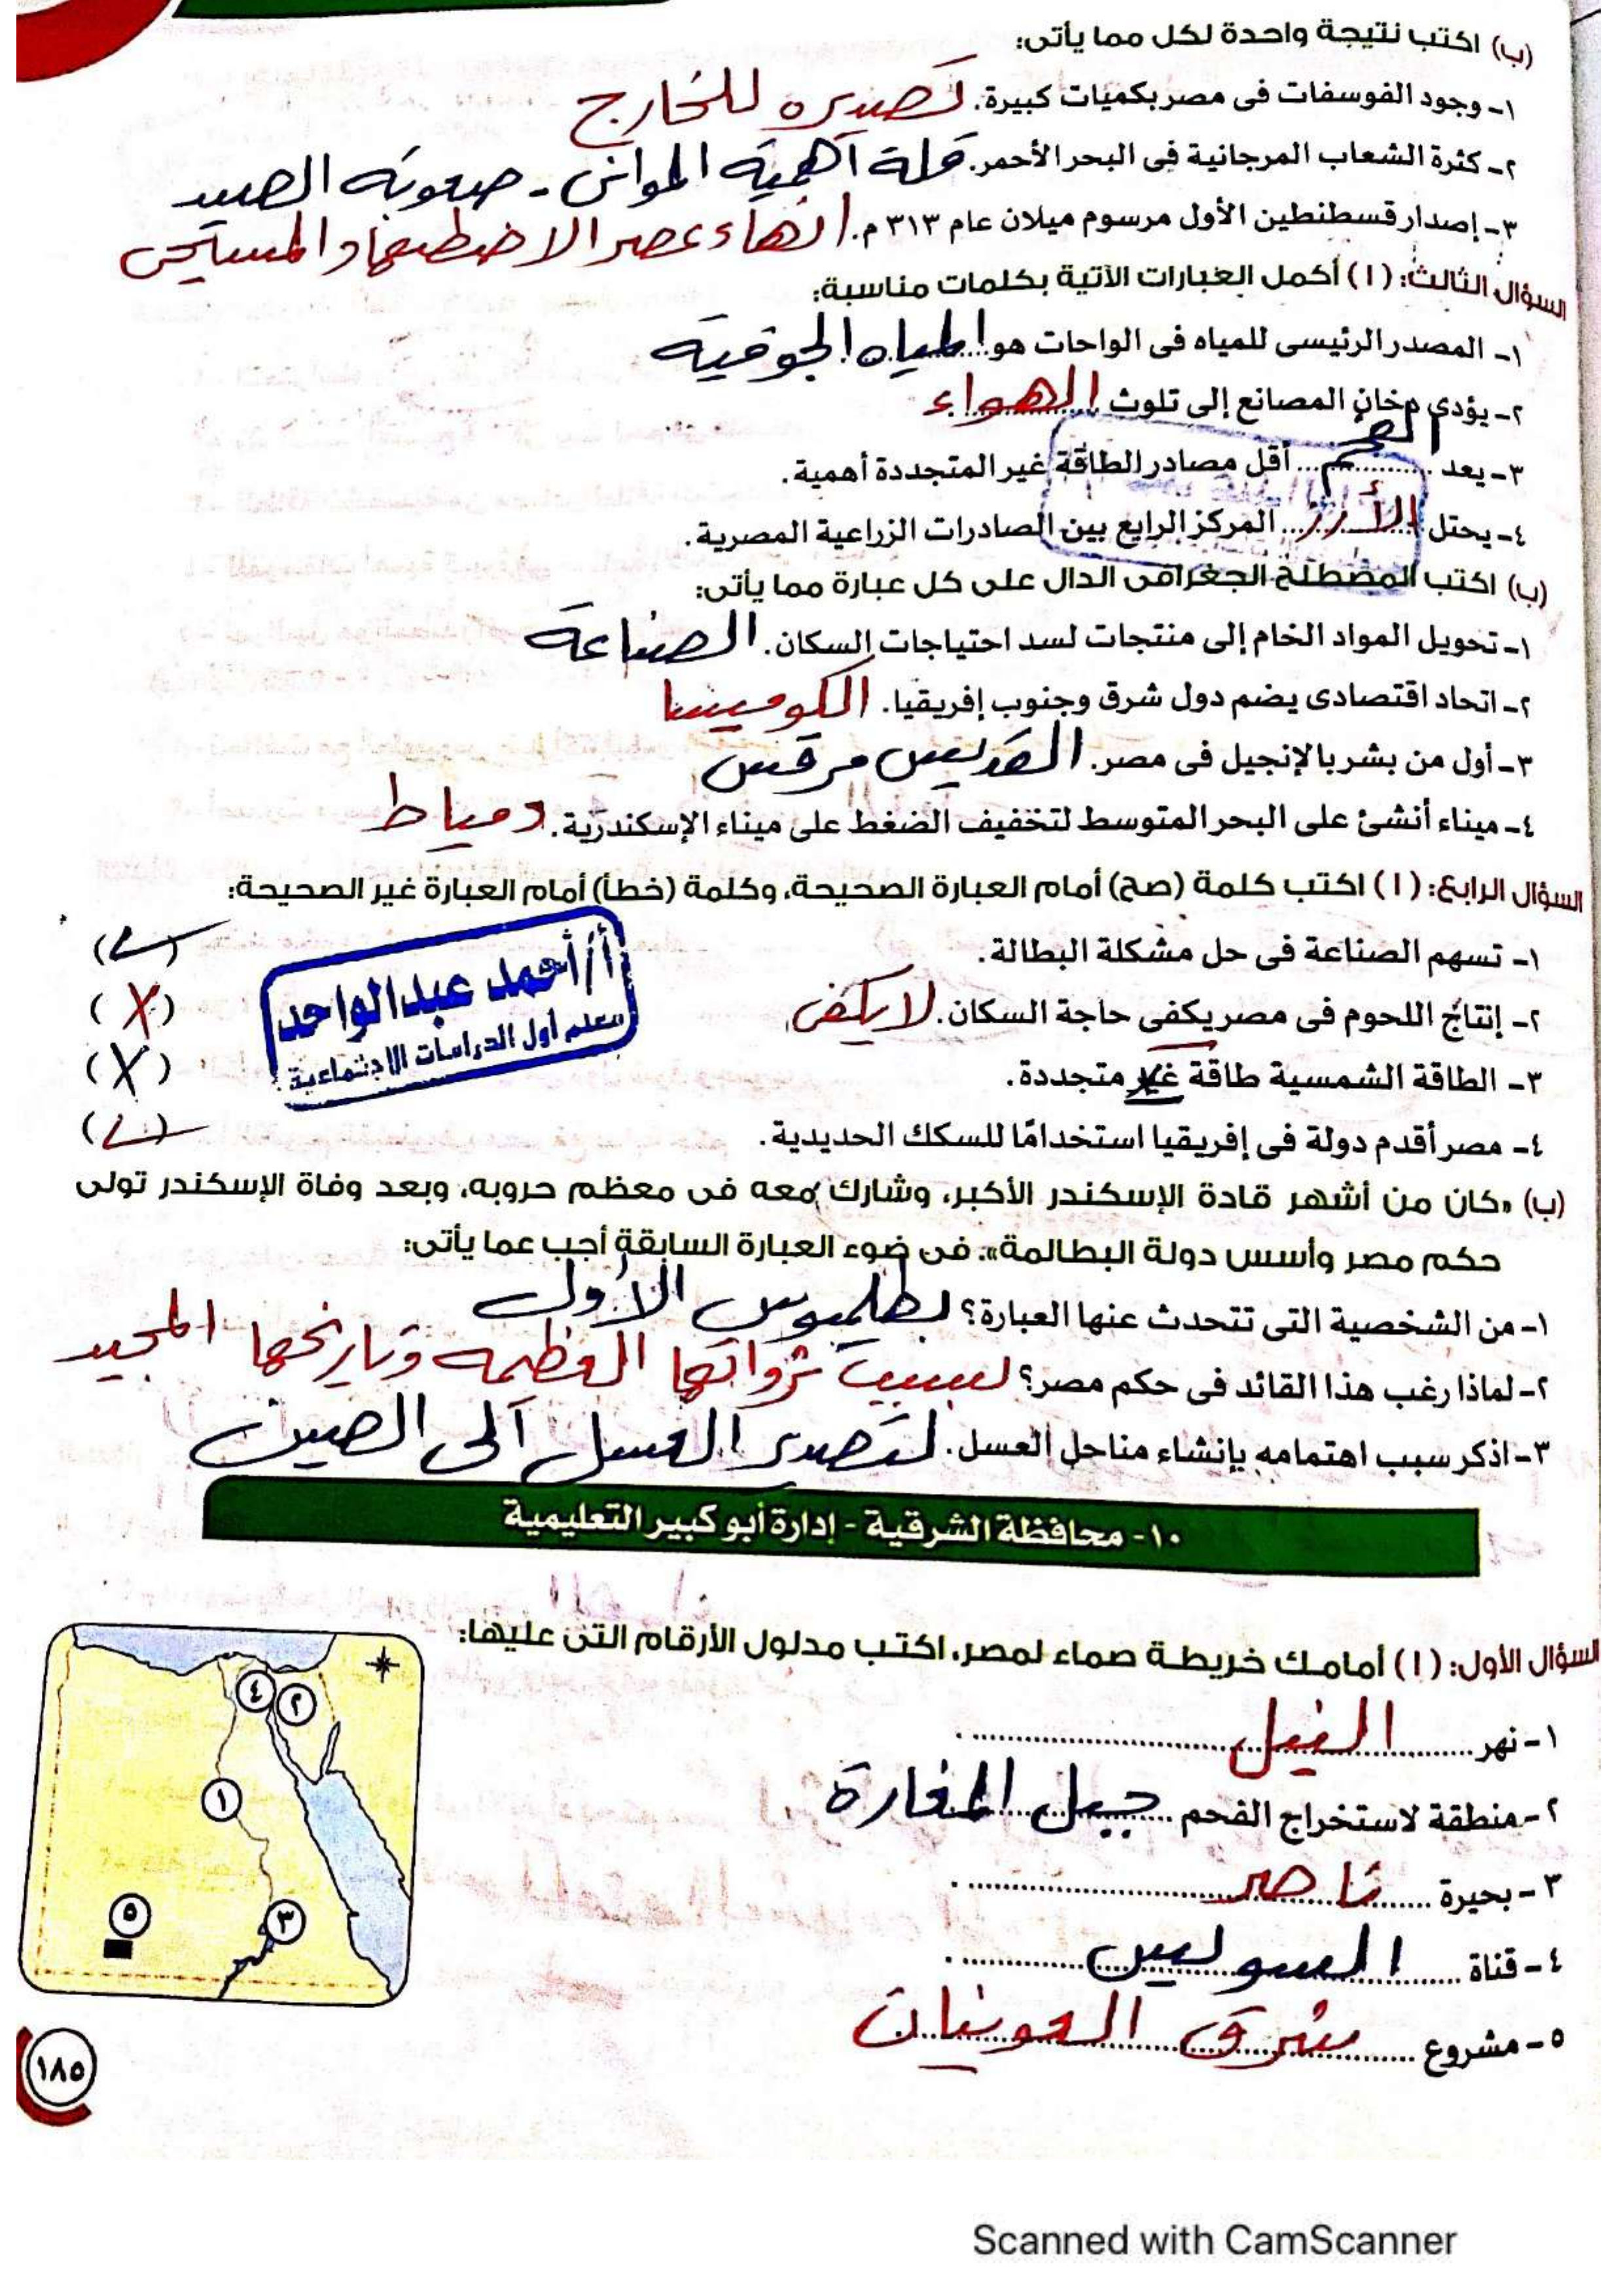 (ب) اكتب نتيجة واحدة لكل مما يأتى:
١- وجود الفوسفات فى مصر بكميات كبيرة. تصديره للخارج
٢- كثرة الشعاب المرجانية فى البحر الأحمر. قلة أهمية الموانى - صعوبة الصيد
٣- إصدار قسطنطين الأول مرسوم ميلان عام ٣١٣ م. انهاء عصر الاضطهاد المسيحى
السؤال الثالث: (١) أكمل العبارات الآتية بكلمات مناسبة:
١- المصدر الرئيسى للمياه فى الواحات هو المياه الجوفية
٢- يؤدى دخان المصانع إلى تلوث الهواء
٣- يعد الفحم أقل مصادر الطاقة غير المتجددة أهمية.
٤- يحتل الأرز المركز الرابع بين الصادرات الزراعية المصرية.
(ب) اكتب المصطلح الجغرافى الدال على كل عبارة مما يأتى:
١- تحويل المواد الخام إلى منتجات لسد احتياجات السكان. الصناعة
٢- اتحاد اقتصادى يضم دول شرق وجنوب إفريقيا. الكوميسا
٣- أول من بشر بالإنجيل فى مصر. القديس مرقس
٤- ميناء أنشئ على البحر المتوسط لتخفيف الضغط على ميناء الإسكندرية. دمياط
السؤال الرابع: (١) اكتب كلمة (صح) أمام العبارة الصحيحة، وكلمة (خطأ) أمام العبارة غير الصحيحة:
١- تسهم الصناعة فى حل مشكلة البطالة. (✓)
٢- إنتاج اللحوم فى مصر يكفى حاجة السكان. لا يكفى (X)
٣- الطاقة الشمسية طاقة غير متجددة. (X)
٤- مصر أقدم دولة فى إفريقيا استخدامًا للسكك الحديدية. (✓)
أ/أحمد عبدالواحد
معلم أول الدراسات الاجتماعية
(ب) «كان من أشهر قادة الإسكندر الأكبر، وشارك معه فى معظم حروبه، وبعد وفاة الإسكندر تولى
حكم مصر وأسس دولة البطالمة». فى ضوء العبارة السابقة أجب عما يأتى:
١- من الشخصية التى تتحدث عنها العبارة؟ بطلميوس الأول
٢- لماذا رغب هذا القائد فى حكم مصر؟ بسبب ثرواتها العظيمه وتاريخها المجيد
٣- اذكر سبب اهتمامه بإنشاء مناحل العسل. لتصدير العسل إلى الصين
١٠- محافظة الشرقية - إدارة أبو كبير التعليمية
السؤال الأول: (١) أمامك خريطة صماء لمصر، اكتب مدلول الأرقام التى عليها:
١- نهر النيل
٢- منطقة لاستخراج الفحم جبل المغارة
٣- بحيرة ناصر
٤- قناة السويس
٥- مشروع شرق العوينات
٤
٢
١
٥
٣
١٨٥
Scanned with CamScanner